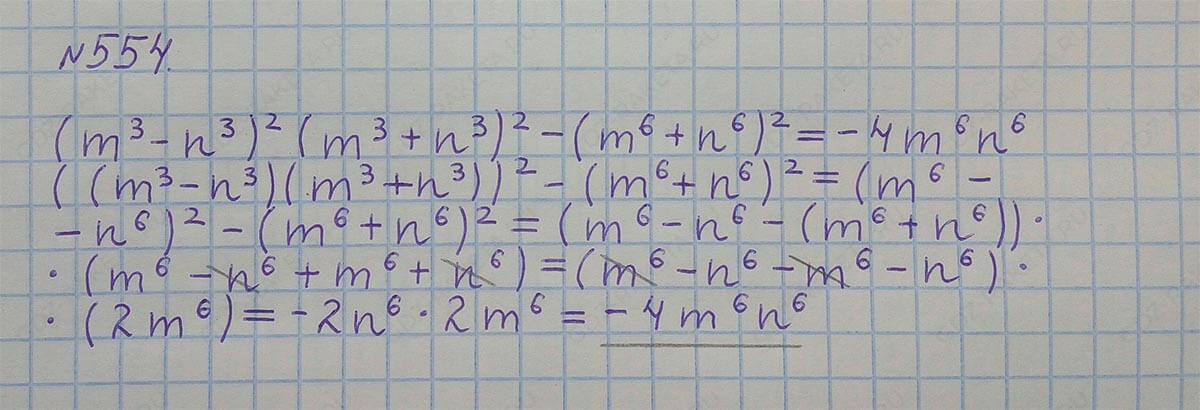 №554.
(m³ - n³)² (m³ + n³)² - (m⁶ + n⁶)² = -4m⁶n⁶
((m³ - n³)(m³ + n³))² - (m⁶ + n⁶)² = (m⁶ -
- n⁶)² - (m⁶ + n⁶)² = (m⁶ - n⁶ - (m⁶ + n⁶)) ·
· (m⁶ - n⁶ + m⁶ + n⁶) = (m⁶ - n⁶ - m⁶ - n⁶) ·
· (2m⁶) = -2n⁶ · 2m⁶ = -4m⁶n⁶